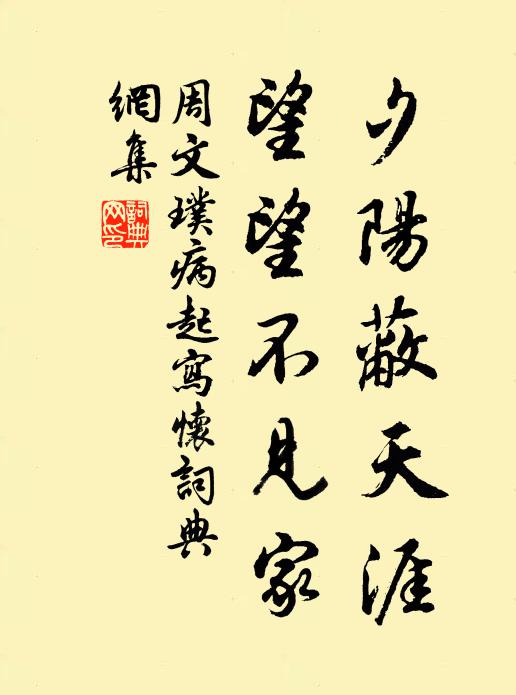 夕陽蔽天涯
望望不見家
周文璞病起寫懷詞典
網集
詞典網印